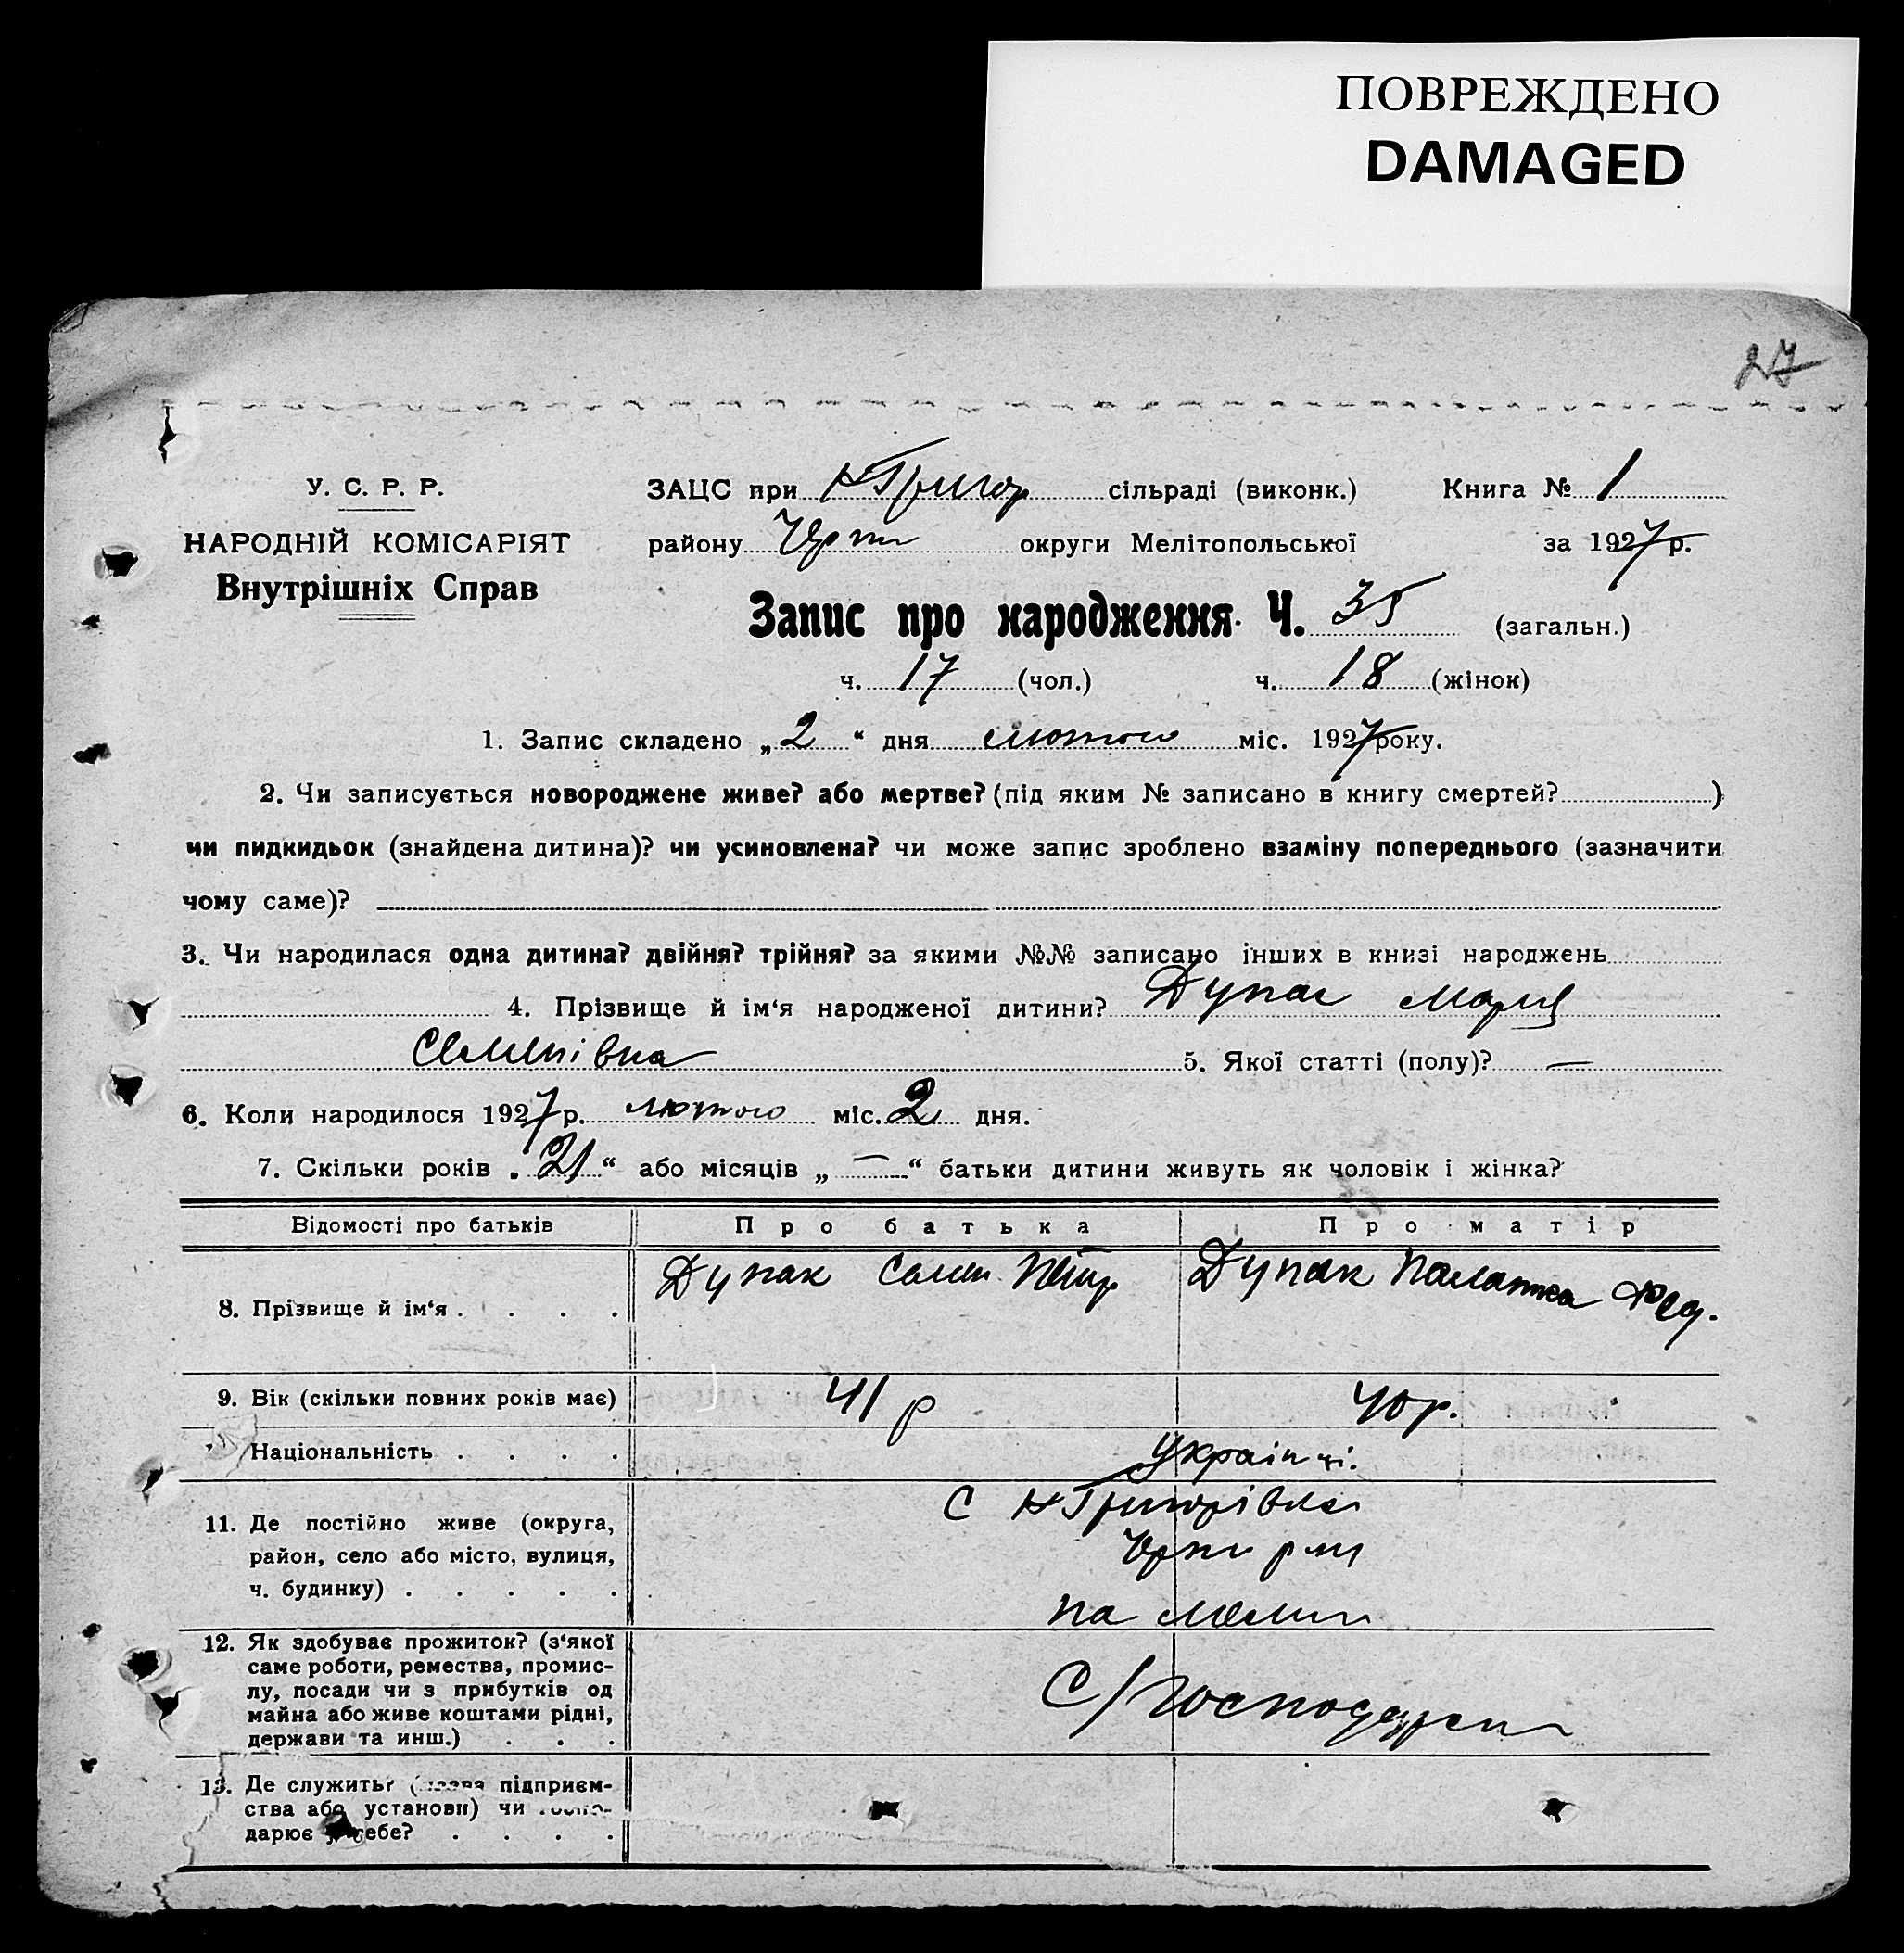 ПОВРЕЖДЕНО
DAMAGED
27
У. С. Р. Р.
НАРОДНІЙ КОМІСАРІЯТ
Внутрішніх Справ
ЗАЦС при Н Григор сільраді (виконк.) Книга № 1
району округи Мелітопольської за 1927 р.
Запис про народження Ч. 35 (загальн.)
ч. 17 (чол.) ч. 18 (жінок)
1. Запис складено „2“ дня лютого міс. 1927 року.
2. Чи записується новороджене живе? або мертве? (під яким № записано в книгу смертей? )
чи пидкидьок (знайдена дитина)? чи усиновлена? чи може запис зроблено взаміну попереднього (зазначити
чому саме)?
3. Чи народилася одна дитина? двійня? трійня? за якими №№ записано інших в книзі народжень
4. Прізвище й ім‘я народженої дитини? Дупак Марія
Семенівна 5. Якої статті (полу)? —
6. Коли народилося 1927 р. лютого міс. 2 дня.
7. Скільки років „21“ або місяців „—“ батьки дитини живуть як чоловік і жінка?
Відомості про батьків Про батька Про матір
8. Прізвище й ім‘я . . . . Дупак Семен Петр Дупак Палажка Фед.
9. Вік (скільки повних років має) 41 р 40 р.
Національність . . . . Українці.
11. Де постійно живе (округа, С Н Григорівка
район, село або місто, вулиця,
ч. будинку) . . . . . на Меліт
12. Як здобуває прожиток? (з‘якої
саме роботи, ремества, промис-
лу, посади чи з прибутків од
майна або живе коштами рідні, С/господарси
держави та инш.) . . .
13. Де служить? ( підприєм-
ства або установи) чи госпо-
дарює у себе? . . . .